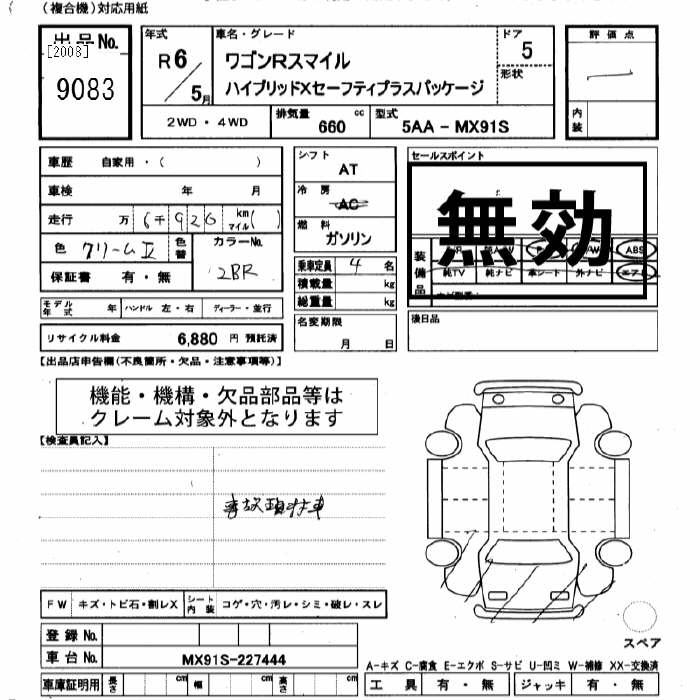 (複合機)対応用紙
出品No. [2003] 9083
年式 R6/5月
車名・グレード ワゴンRスマイル
ハイブリッドXセーフティプラスパッケージ
ドア 5
形状
評価点
内装
2WD・4WD 排気量 660 cc 型式 5AA - MX91S
車歴 自家用・( )
車検 年 月
走行 万 6千926 km マイル( )
色 クリームⅡ 色替 カラーNo. 2BR
保証書 有・無
モデル年式 年 ハンドル 左・右 ディーラー・並行
リサイクル料金 6,880 円 預託済
シフト AT
冷房 AC
燃料 ガソリン
乗車定員 4 名
積載量 kg
総重量 kg
名変期限
月 日
セールスポイント
無効
装備品 ABS
純TV 純ナビ 革シート 外ナビ
後日品
【出品店申告欄(不良箇所・欠品・注意事項等)】
機能・機構・欠品部品等は
クレーム対象外となります
【検査員記入】
FW キズ・トビ石・割レX シート内装 コゲ・穴・汚レ・シミ・破レ・スレ
登録No.
車台No. MX91S-227444
車庫証明用 長さ cm 幅 cm 高さ cm
スペア
A-キズ C-腐食 E-エクボ S-サビ U-凹ミ W-補修 XX-交換済
工具 有・無 ジャッキ 有・無